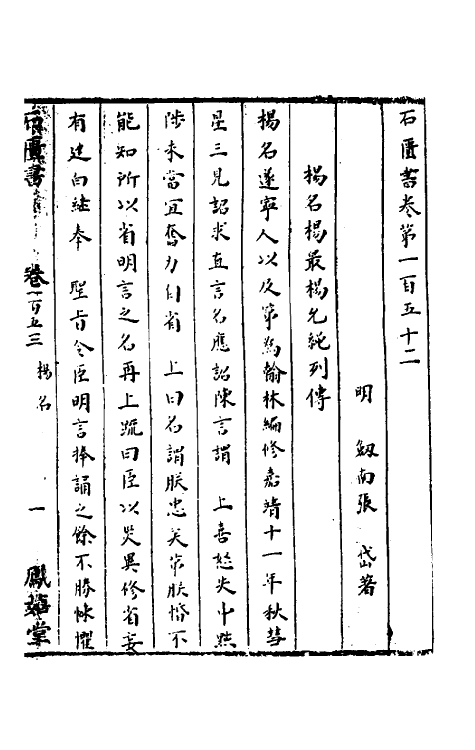 石匱書卷第一百五十二
明 劔南張 岱著
楊名楊最楊允繩列傳
楊名遂寧人以及第為翰林編修嘉靖十一年秋彗
星三見詔求直言名應詔陳言謂 上喜怒失中黜
陟未當宜奮力自省 上曰名謂朕忠美第朕惛不
能知所以省明言之名再上疏曰臣以災異修省妄
有建白繼奉 聖旨令臣明言捧誦之餘不勝悚懼
石匱書 卷一百五三 楊名 一 鳳嬉堂